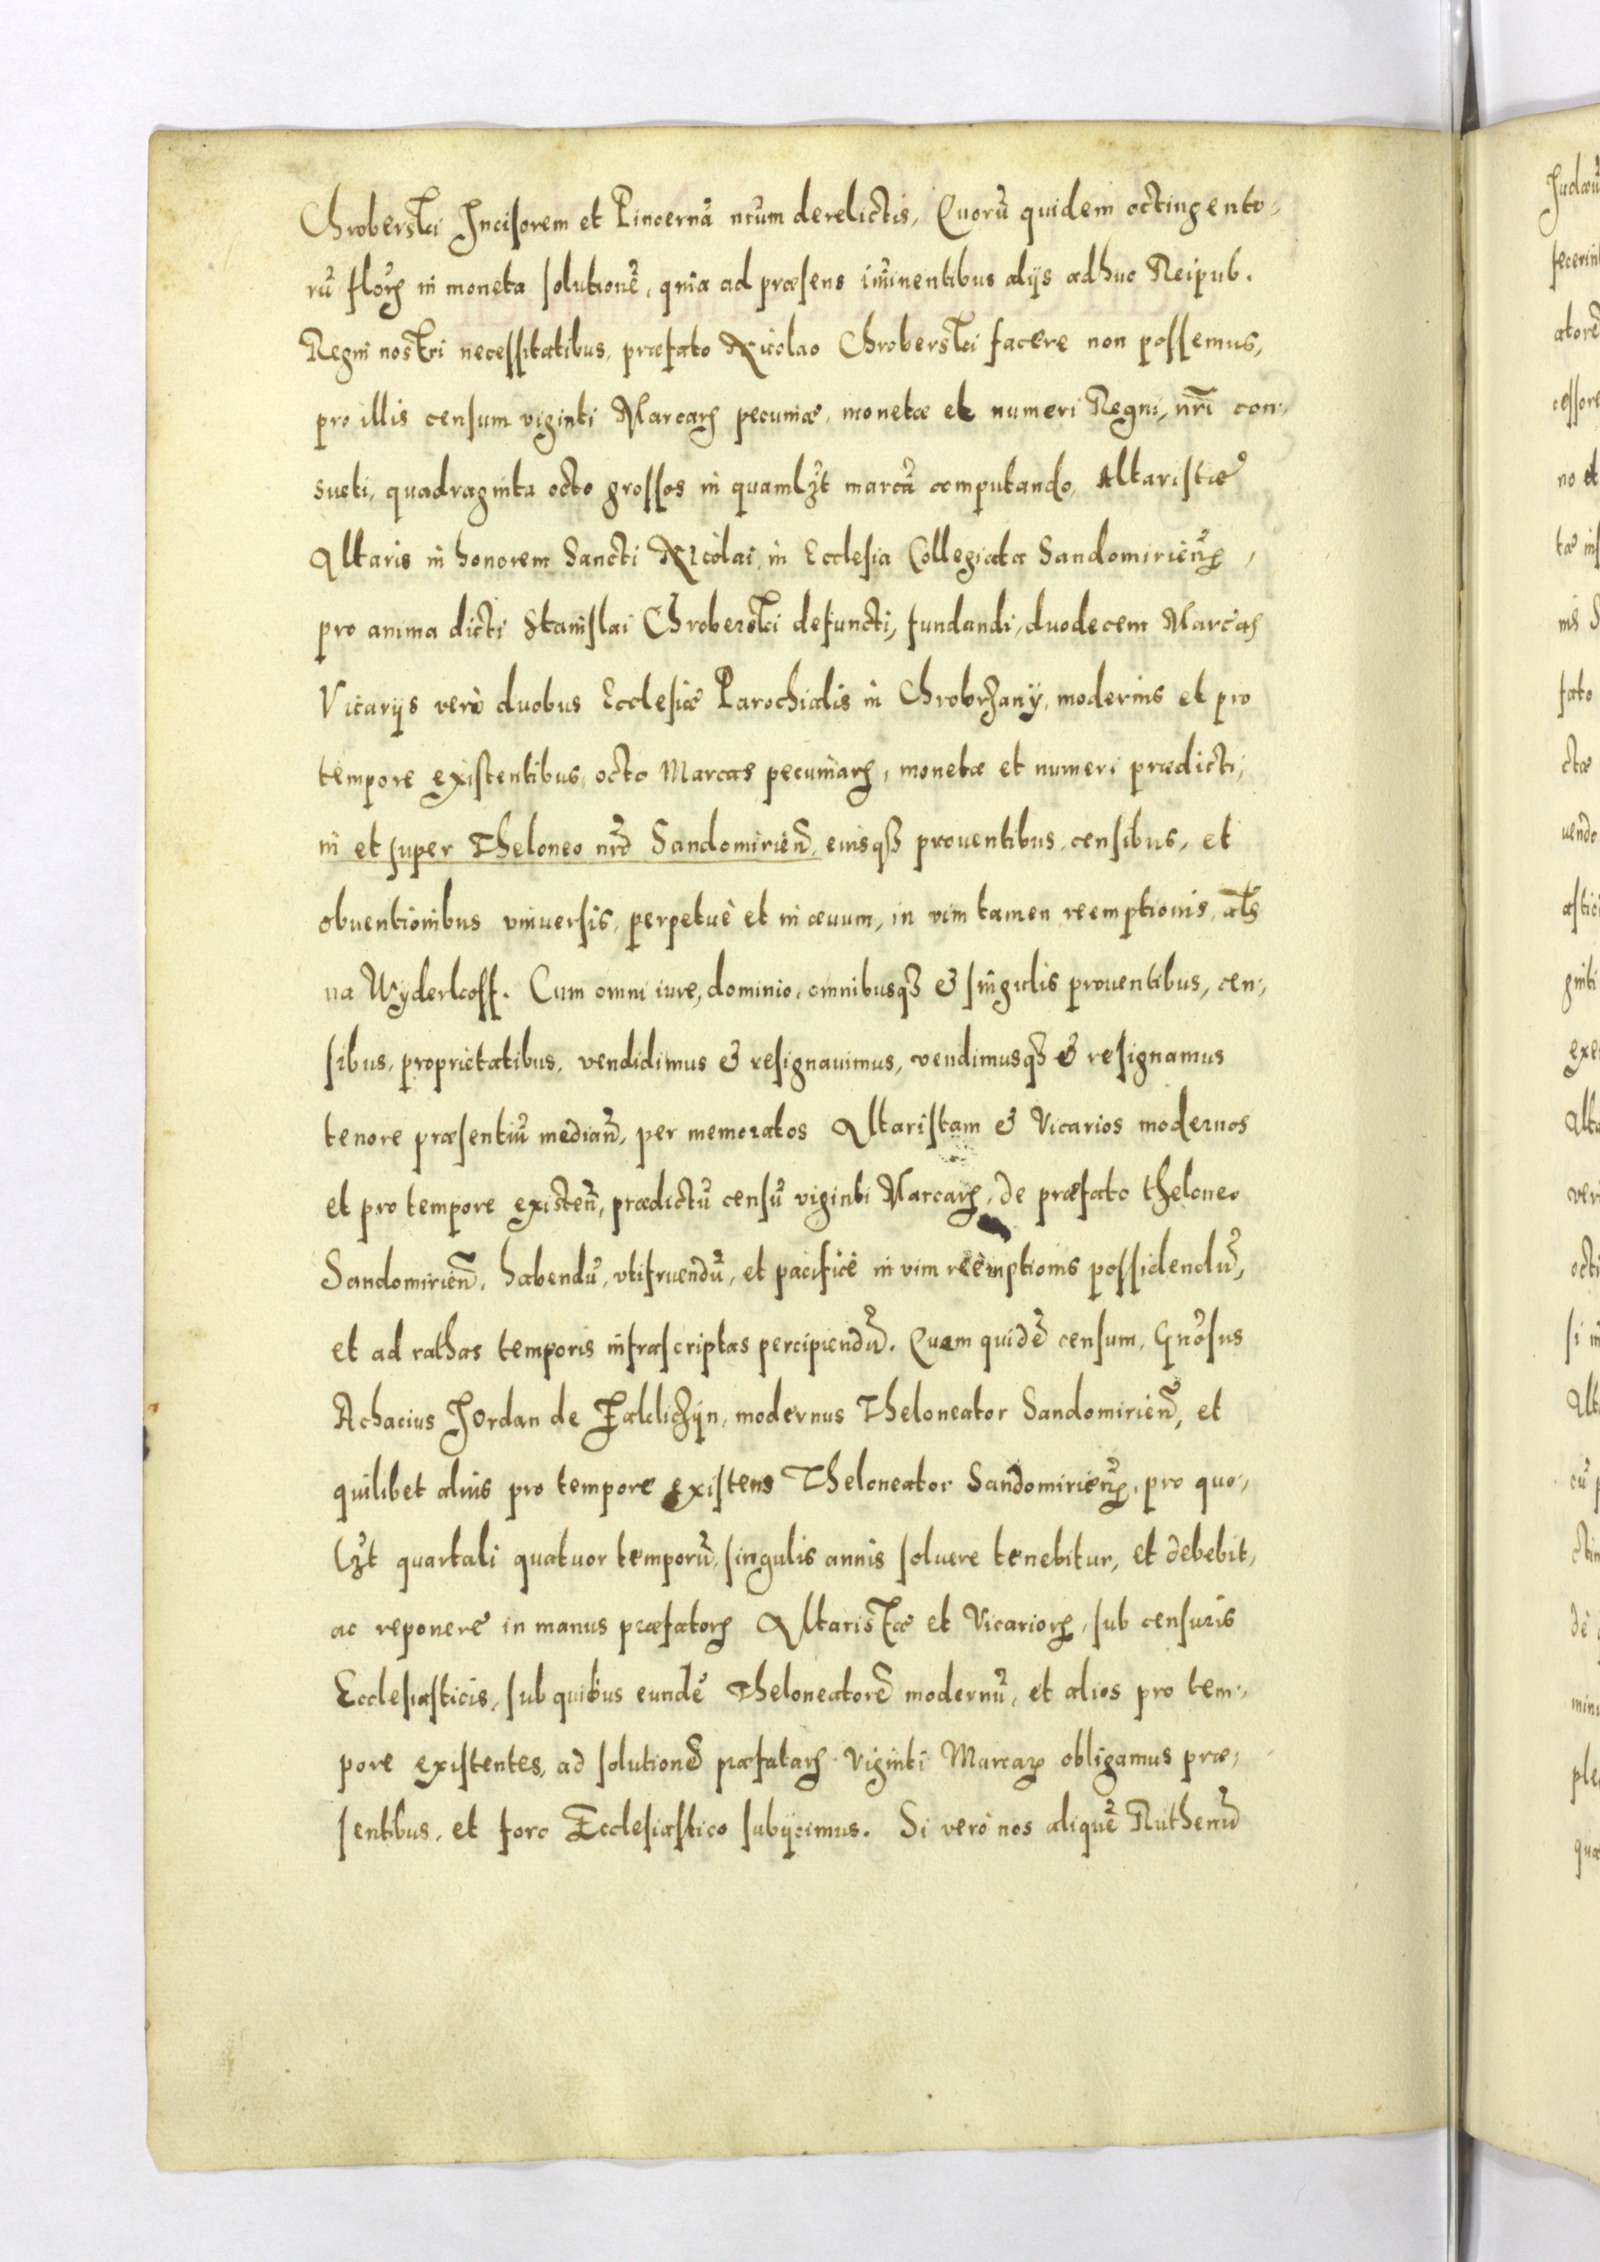 Chroberski Incisorem et Pincernā nr̄um derelictis, Quorū quidem octingento-
rū florꝝ in moneta solutionē, quia ad præsens im̄inentibus alijs adhuc Reipub.
Regni nostri necessitatibus, præfato Nicolao Chroberski facere non possemus,
pro illis censum viginti Marcarꝝ pecuniæ, monetæ et numeri Regni, nr̄i con-
sueti, quadraginta octo grossos in quamlꝫt marcā computando, Altaristæ
Altaris in honorem Sancti Nicolai, in Ecclesia Collegiata Sandomirien̄,
pro anima dicti Stanislai Chroberski defuncti, fundandi, duodecem Marcas
Vicarijs verò duobus Ecclesiæ Parochialis in Chrobrzany, modernis et pro
tempore existentibus, octo Marcas pecuniarꝝ, monetæ et numeri prædicti,
in et super Theloneo nr̄o Sandomirien̄, eiusqꝫ prouentibus, censibus, et
obuentionibus vniuersis, perpetuè et in æuum, in vim tamen reemptionis, al̄s
na Wyderkoff. Cum omni iure, dominio, omnibusqꝫ & singulis prouentibus, cen-
sibus, proprietatibus, vendidimus & resignauimus, vendimusqꝫ & resignamus
tenore præsentiū median̄, per memoratos Altaristam & Vicarios modernos
et pro tempore existen̄, prædictū censū viginti Marcarꝝ, de præfato theloneo
Sandomirien̄, habendū, vtifruendū, et pacificè in vim reemptionis possidendū,
et ad rathas temporis infrascriptas percipiendū. Quem quidē censum, Gn̄osus
Achacius Jordan de Zakliczyn, modernus Theloneator Sandomirien̄, et
quilibet alius pro tempore existens Theloneator Sandomirien̄, pro quo-
lꝫt quartali quatuor temporū, singulis annis soluere tenebitur, et debebit,
ac reponere in manus præfatorꝝ Altaristæ et Vicariorꝝ, sub censuris
Ecclesiasticis, sub quibus eundē Theloneatorē modernū, et alios pro tem-
pore existentes, ad solutionē præfatarꝝ viginti Marcarꝝ obligamus præ-
sentibus, et foro Ecclesiastico subijcimus. Si verò nos aliquē Ruthenū